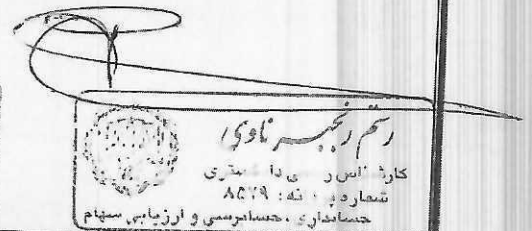 رستم رنجبر ناوی
کارشناس رسمی دادگستری
شماره پروانه: ۸۵۲۹
حسابداری ، حسابرسی و ارزیابی سهام